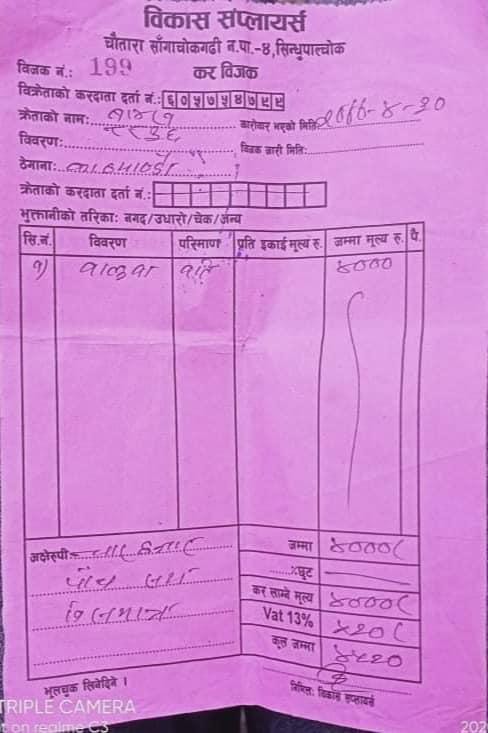 विकास सप्लायर्स
चौतारा साँगाचोकगढी न.पा.-४, सिन्धुपाल्चोक
विजक नं.: 199 कर विजक
विक्रेताको करदाता दर्ता नं.:
क्रेताको नाम: कारोवार भएको मितिः
विवरण: विजक जारी मितिः
ठेगाना:
क्रेताको करदाता दर्ता नं.:
भुक्तानीको तरिकाः नगद/उधारो/चेक/अन्य
सि.नं. विवरण परिमाण प्रति इकाई मूल्य रु. जम्मा मूल्य रु. पै.
१) वालुवा ४०००
अक्षेरुपी चार हजार जम्मा ४०००
पाँच सय %छुट
कर लाग्ने मूल्य ४०००
Vat 13% ५२०
कूल जम्मा ४५२०
भूलचुक लिनेदिने । निमित्त: विकास सप्लायर्स
TRIPLE CAMERA
on realme C3 202